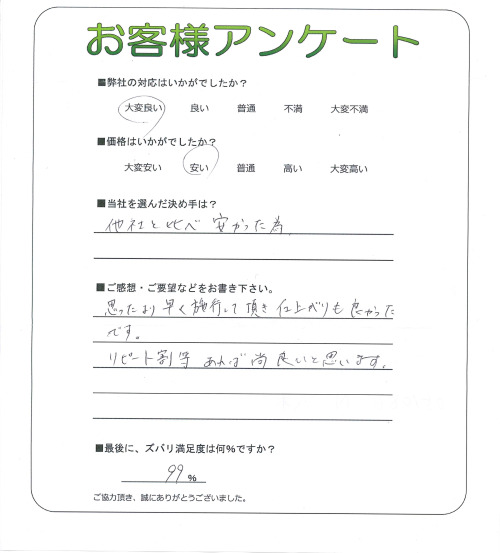 お客様アンケート
■弊社の対応はいかがでしたか?
大変良い 良い 普通 不満 大変不満
■価格はいかがでしたか?
大変安い 安い 普通 高い 大変高い
■当社を選んだ決め手は?
他社と比べ 安かった為
■ご感想・ご要望などをお書き下さい。
思ったより早く施行して頂き 仕上がりも良かった
です。
リピート割等 あれば尚良いと思います。
■最後に、ズバリ満足度は何%ですか?
99%
ご協力頂き、誠にありがとうございました。